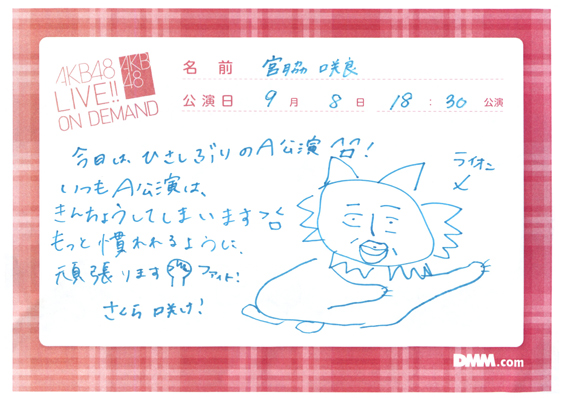 AKB48
LIVE!!
ON DEMAND
AKB
48
名前 宮脇 咲良
公演日 9月 8日 18:30 公演
今日は、ひさしぶりのA公演!
いつもA公演は、
きんちょうしてしまいます
もっと慣れれるように、
頑張ります ファイト!
さくら 咲け!
ライオン
DMM.com